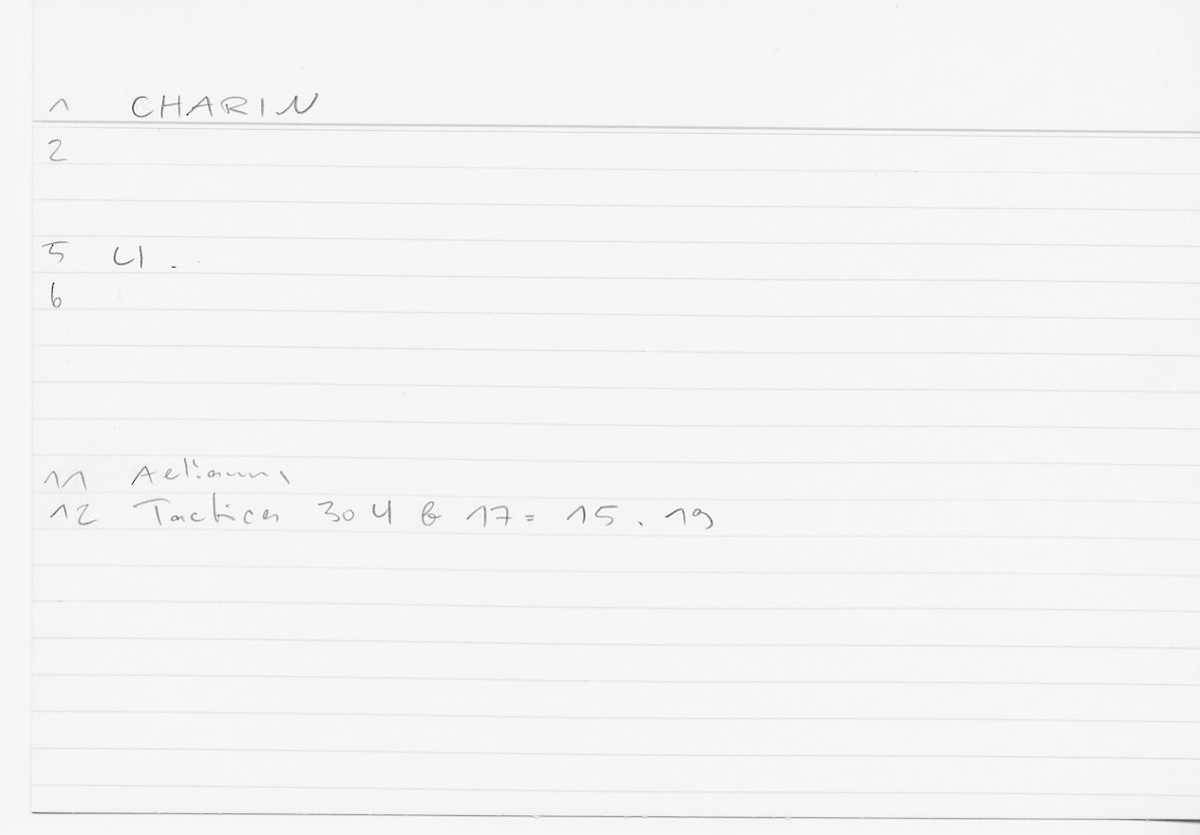 1 CHARIN
2
5 U.
6
11 Aelianus
12 Tactica 304 b 17 = 15.19